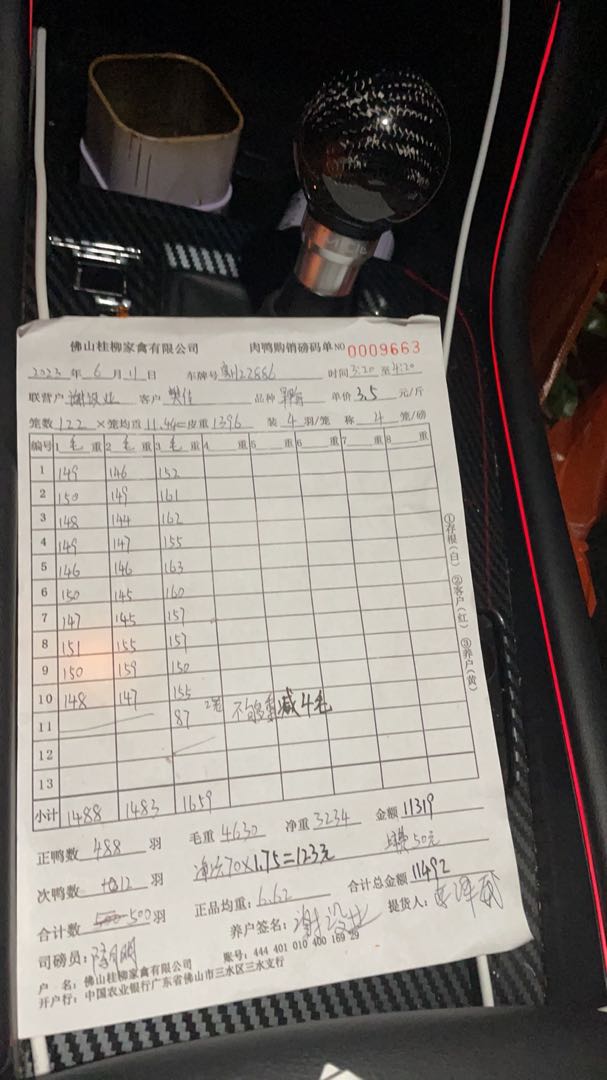 佛山桂柳家禽有限公司 肉鸭购销磅码单 NO 0009663
2023 年 6 月 11 日 车牌号 22886 时间 3:20 至 4:20
联营户 客户 樊佳 品种 单价 3.5 元/斤
笼数 122 ×笼均重 11.44=皮重 1396 装 4 羽/笼 称 4 笼/磅
编号 1 毛 重 2 毛 重 3 毛 重 4 重 5 重 6 重 7 重 8 重
1 149 146 152
2 150 149 161
3 148 144 162
4 149 147 155
5 146 146 163
6 150 145 160
7 147 145 157
8 151 155 157
9 150 159 150
10 148 147 155
11 87 2笼 不够重减4毛
12
13
小计 1488 1483 1659
①存根(白) ②客户(红) ③养户(黄)
正鸭数 488 羽 毛重 4630 净重 3234 金额 11319
次鸭数 12 羽 70×1.75=123元 50元
合计数 500 羽 正品均重: 6.62 合计总金额 11492
司磅员: 养户签名: 提货人:
户 名: 佛山桂柳家禽有限公司 账号: 444 401 010 400 169 29
开户行: 中国农业银行广东省佛山市三水区三水支行